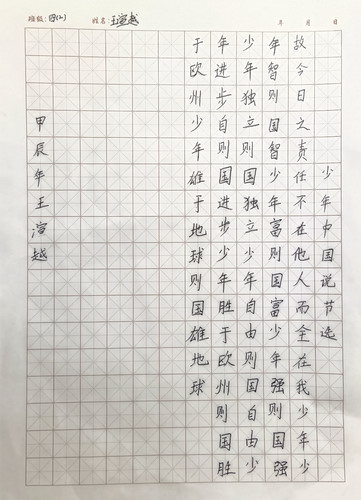 班级:四(2) 姓名:王渲越 年 月 日
少年中国说节选
故今日之责任不在他人而全在我少年少
年智则国智少年富则国富少年强则国强
少年独立则国独立少年自由则国自由少
年进步自则国进步少年胜于欧州则国胜
于欧州少年雄于地球则国雄地球
甲辰年王渲越